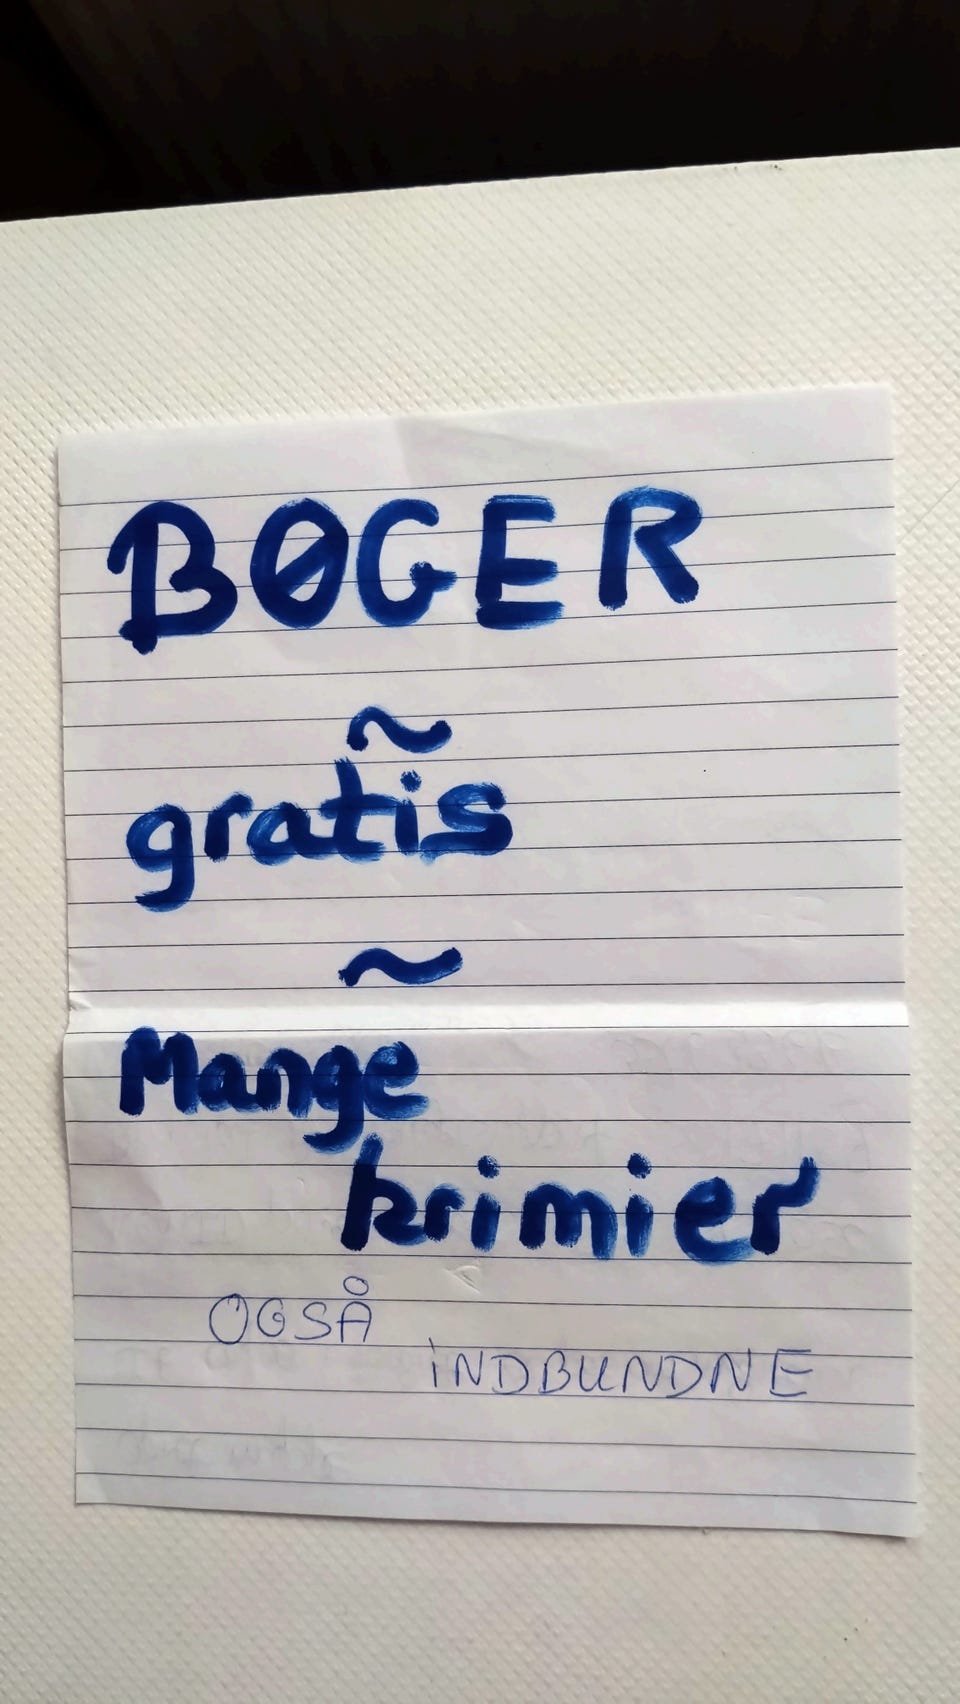 BØGER
~
gratis
~
Mange
krimier
OGSÅ
iNDBUNDNE